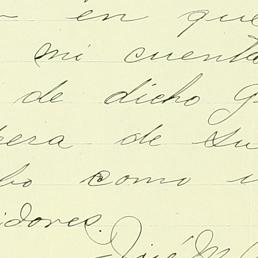 en que
mi cuenta
de dicho g
pera de su
bo como u
idores.
José M.